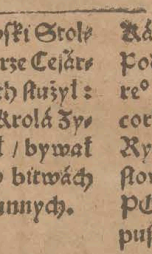 ski Stol⸗
rze Cesár⸗
ch służył :
Krolá Zy⸗
ł / bywał
bitwách
innych.
Ká
Po
reº
cor
Ry
slo
PO
pus